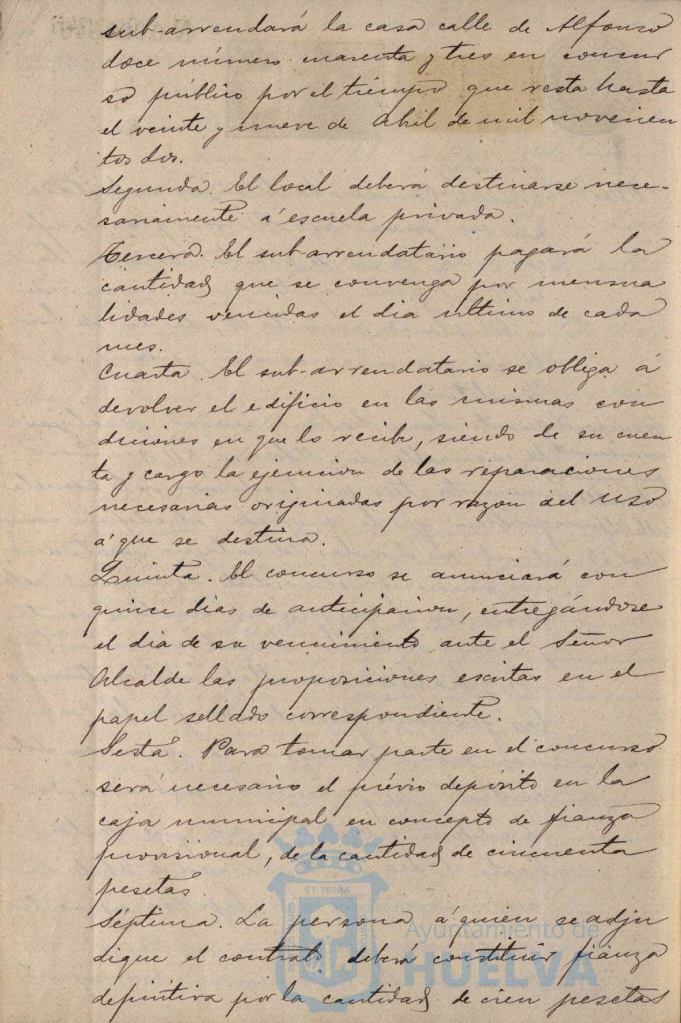 sub-arrendará la casa calle de Alfonso
doce número cuarenta y tres en concur
so público por el tiempo que resta hasta
el veinte y nueve de Abril de mil novecien
tos dos.
Segunda. El local deberá destinarse nece-
sariamente á escuela privada.
Tercera. El sub-arrendatario pagará la
cantidad que se convenga por mensua
lidades vencidas el dia ultimo de cada
mes.
Cuarta. El sub-arrendatario se obliga á
devolver el edificio en las mismas con
diciones en que lo recibe, siendo de su cuen
ta y cargo la ejecucion de las reparaciones
necesarias originadas por razon del uso
á que se destina.
Quinta. El concurso se anunciará con
quince dias de anticipacion, entregándose
el dia de su vencimiento ante el Señor
Alcalde las proposiciones escritas en el
papel sellado correspondiente.
Sesta. Para tomar parte en el concurso
será necesario el prévio depósito en la
caja municipal en concepto de fianza
provisional, de la cantidad de cincuenta
pesetas.
Séptima. La persona á quien se adju
dique el contrato deberá constituir fianza
definitiva por la cantidad de cien pesetas
Ayuntamiento de
HUELVA